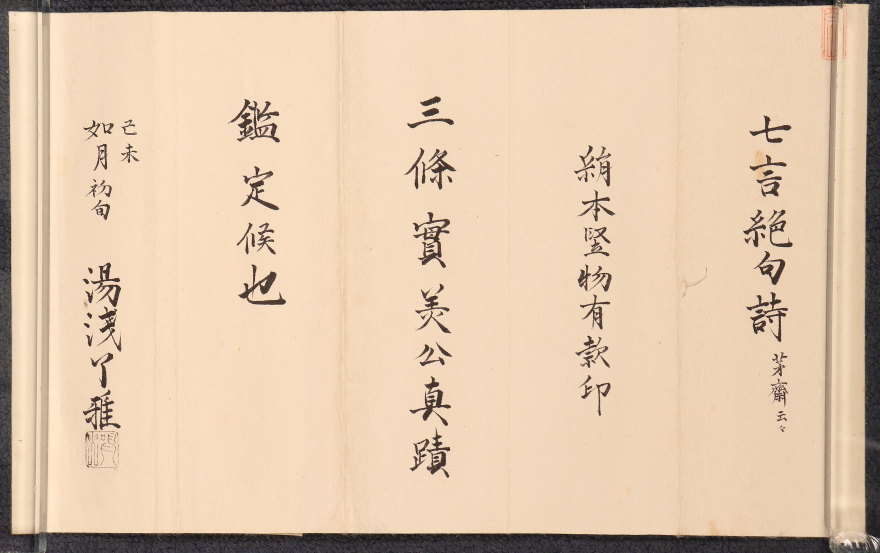 七言絶句詩 茅齋云々
絹本竪物有款印
三條實美公真蹟
鑑定候也
己未
如月初旬
湯淺丫雅